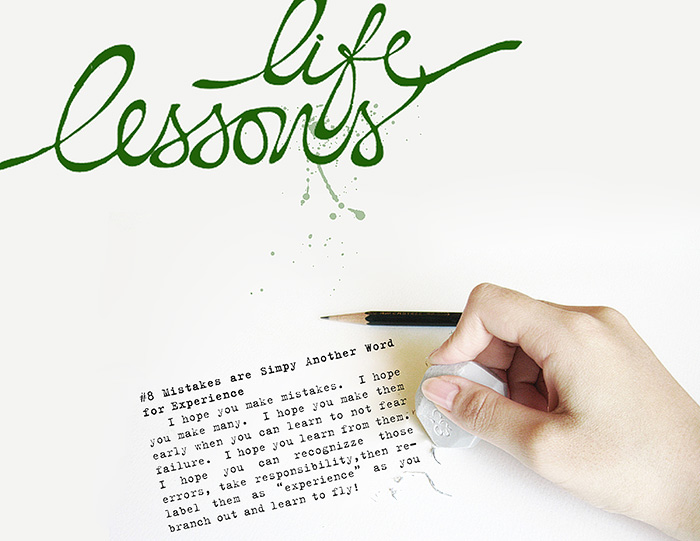 life
lessons
#8 Mistakes are Simpy Another Word
for Experience
I hope you make mistakes. I hope
you make many. I hope you make them
early when you can learn to not fear
failure. I hope you learn from them.
I hope you can recognizze those
errors, take responsibility,then re-
label them as "experience" as you
branch out and learn to fly!